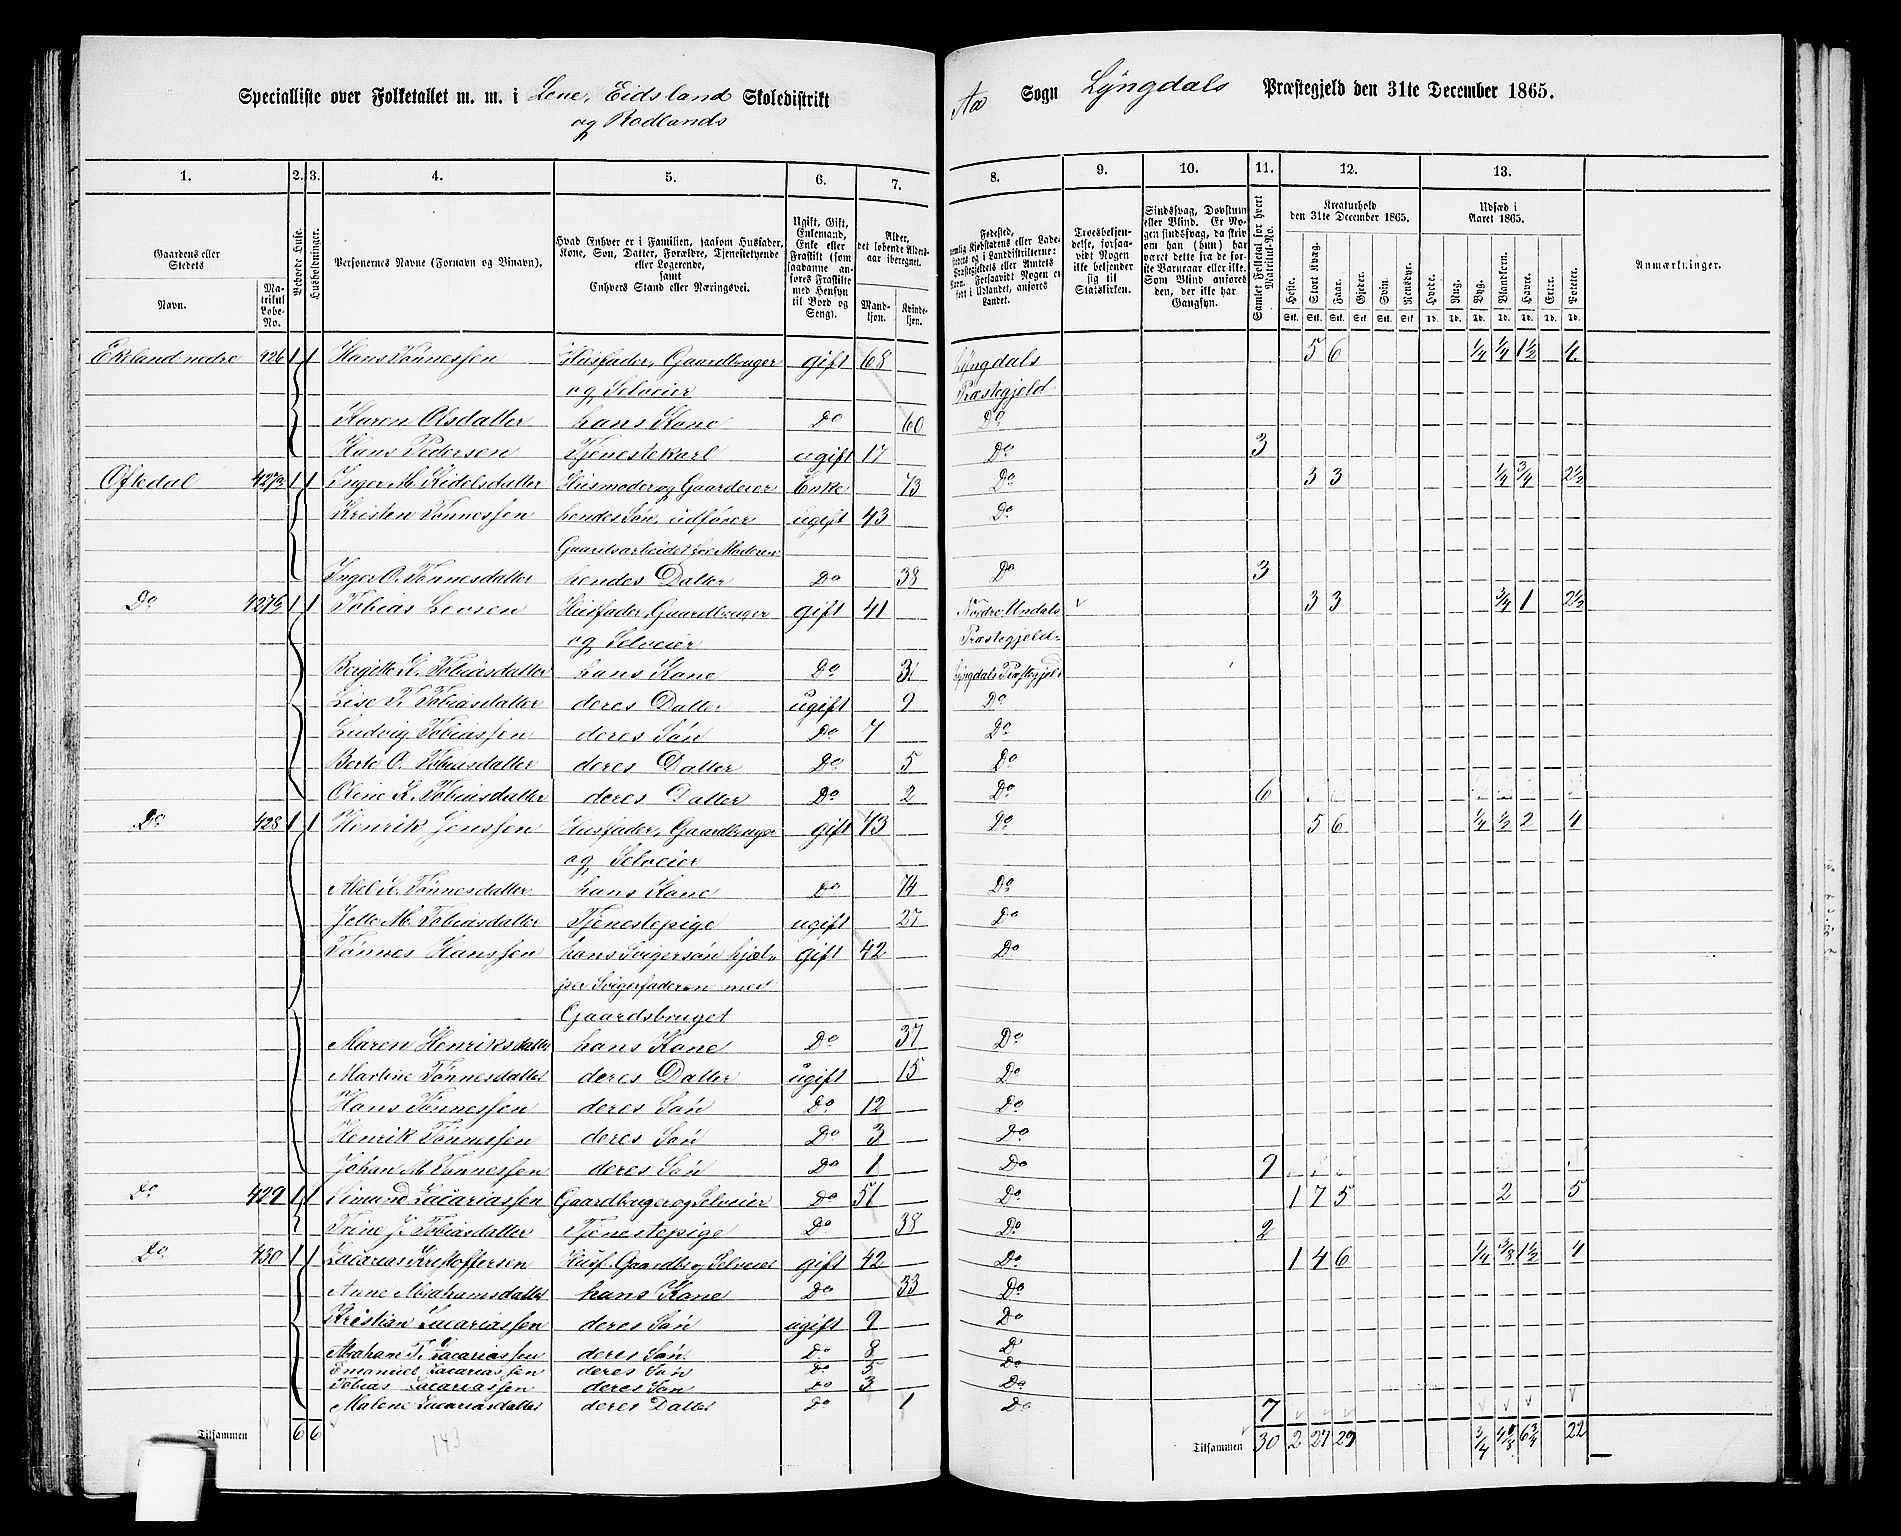 Specialliste over Folketallet m. m. i Lene, Eidsland Skoledistrikt
og Rodlands
Aa Sogn Lyngdals Præstegjeld den 31te December 1865.
1. 2. 3. 4. 5. 6. 7. 8. 9. 10. 11. 12. 13.
Gaardens eller Stedets Navn. Matrikul Løbe-No. Beboede Huse. Husholdninger. Personernes Navne (Fornavn og Tilnavn). Hvad Enhver er i Familien, saasom Husfader, Kone, Søn, Datter, Forældre, Tjenestetyende eller Logerende, samt Enhvers Stand eller Næringsvei. Ugift, Gift, Enkemand, Enke eller Fraskilt (som saadanne anføres Fraskilte med Hensyn til Bord og Seng). Alder, det løbende Aldersaar iberegnet. Mandkjøn. Kvindekjøn.
Troesbekjendelse, forsaavidt Nogen ikke bekjender sig til Statskirken. Sindssvag, Døvstum eller Blind. Samlet Folketal for hvert Matrikul-No. Kreaturhold den 31te December 1865. Udsæd i Aaret 1865. Anmærkninger.
Heste. Stort Kvæg. Faar. Gjeder. Svin. Rensdyr. Hvede. Rug. Byg. Blandkorn. Havre. Erter. Poteter.
Ekeland nedre 426 1 1 Hans Tønnessen Husfader, Gaardbruger gift 68 Lyngdals 5 6 1/4 1/4 1 1/2 4
og Selveier Præstegjeld
Karen Olsdatter hans Kone Do 60 Do
Hans Pedersen Tjenestekarl ugift 17 Do 3
Oftedal 427a 1 1 Inger M. Kidelsdatter Husmoder og Gaardeier Enke 73 Do 3 3 1/4 3/4 2 1/2
Kristen Tønnessen hendes Søn, udfører ugift 43 Do
Gaardsarbeidet for Moderen
Inger O. Tønnesdatter hendes Datter Do 38 Do 3
Do 427b 1 1 Tobias Leosen Husfader, Gaardbruger gift 41 Nordre Undals 3 3 3/4 1 2 1/2
og Selveier Præstegjeld
Bergitte K. Tobiasdatter hans Kone Do 31 Lyngdals Præstegjeld
Lise T. Tobiasdatter deres Datter ugift 9 Do
Ludvig Tobiassen deres Søn Do 7 Do
Berte O. Tobiasdatter deres Datter Do 5 Do
Oline K. Tobiasdatter deres Datter Do 2 Do 6
Do 428 1 1 Henrik Jenssen Husfader, Gaardbruger gift 73 Do 5 6 1/4 1/2 2 4
og Selveier
Abel K. Tønnesdatter hans Kone Do 74 Do
Jette M. Tobiasdatter Tjenestepige ugift 27 Do
Tønnes Hanssen hans Svigersøn hjæl- gift 42 Do
per Svigerfaderen med
Gaardsbruget
Maren Henriksdatter hans Kone Do 37 Do
Martine Tønnesdatter deres Datter ugift 15 Do
Hans Tønnessen deres Søn Do 12 Do
Henrik Tønnessen deres Søn Do 3 Do
Johan M. Tønnessen deres Søn Do 1 Do 9
Do 429 1 1 Simund Zacariassen Gaardbruger og Selveier Do 51 Do 1 7 5 2 5
Trine J. Tobiasdatter Tjenestepige Do 38 Do 2
Do 430 1 1 Zacarias Kristoffersen Husf. Gaardb. og Selveier gift 42 Do 1 4 6 1/4 3/8 1 1/2 4
Anne Abrahamsdatter hans Kone Do 33 Do
Kristian Zacariassen deres Søn ugift 9 Do
Abraham T. Zacariassen deres Søn Do 8 Do
Emanuel Zacariassen deres Søn Do 5 Do
Tobias Zacariassen deres Søn Do 3 Do
Malene Zacariasdatter deres Datter Do 1 Do 7
Tilsammen 6 6 143
Tilsammen 30 2 27 29 3/4 6 3/4 22